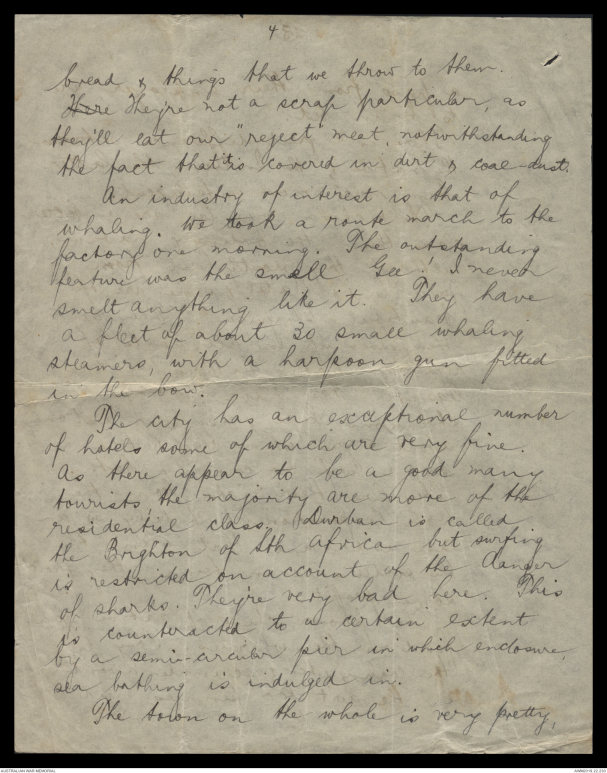 4
bread & things that we throw to them.
Here They're not a scrap particular, as
they'll eat our "reject" meat, notwithstanding
the fact that it's covered in dirt & coal-dust.
An industry of interest is that of
whaling. We took a route march to the
factory one morning. The outstanding
feature was the smell Gee! I never
smelt anything like it. They have
a fleet of about 30 small whaling
steamers, with a harpoon gun fitted
in the bow.
The city has an exceptional number
of hotels some of which are very fine.
As there appear to be a good many
tourists, the majority are more of the
residential class. Durban is called
the Brighton of Sth Africa but surfing
is restricted on account of the danger
of sharks. They're very bad here. This
is counteracted to a certain extent
by a semi-circular pier in which enclosure,
sea bathing is indulged in.
The town on the whole is very pretty,
AUSTRALIAN WAR MEMORIAL